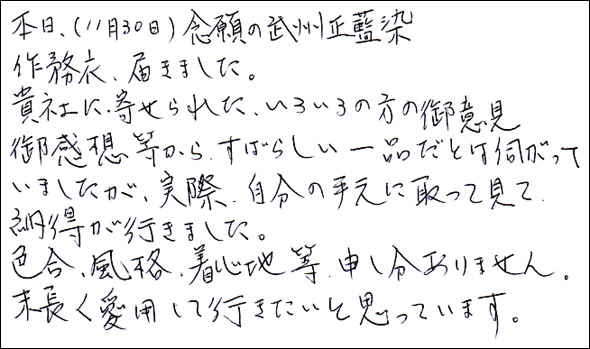 本日、(11月30日)念願の武州正藍染
作務衣、届きました。
貴社に、寄せられた、いろいろの方の御意見
御感想等から、すばらしい一品だとは伺がって
いましたが、実際、自分の手元に取って見て、
納得が行きました。
色合、風格、着心地等、申し分ありません。
末長く愛用して行きたいと思っています。